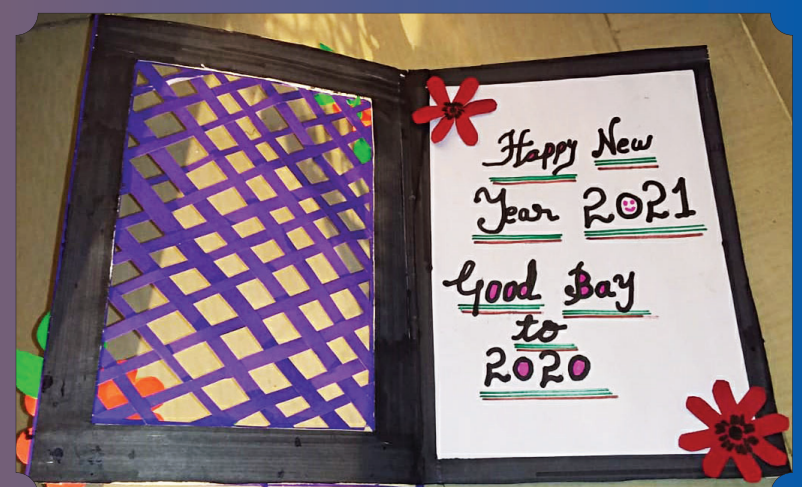 Happy New
Year 2021
Good Bay
to
2020